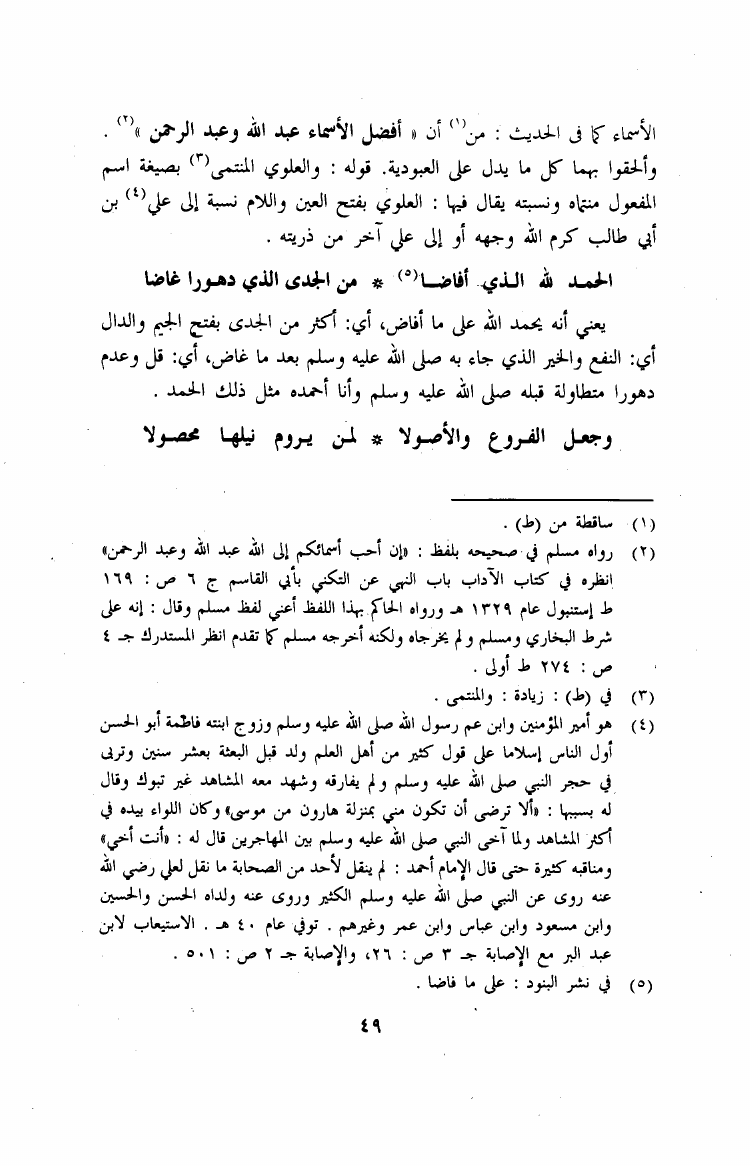 الأسماء كما في الحديث : من(١) أن « أفضل الأسماء عبد الله وعبد الرحمن »(٢) .
وألحقوا بهما كل ما يدل على العبودية. قوله : والعلوي المنتمى(٣) بصيغة اسم
المفعول منتماه ونسبته يقال فيها : العلويّ بفتح العين واللام نسبة إلى علي(٤) بن
أبي طالب كرم الله وجهه أو إلى علي آخر من ذريته .
الحمـد لله الـذي أفاضـا(٥) * من الجدى الذي دهـورا غاضا
يعني أنه يحمد الله على ما أفاض، أي: أكثر من الجدى بفتح الجيم والدال
أي: النفع والخير الذي جاء به صلى الله عليه وسلم بعد ما غاض، أي: قل وعدم
دهورا متطاولة قبله صلى الله عليه وسلم وأنا أحمده مثل ذلك الحمد .
وجعـل الفـروع والأصـولا * لمـن يـروم نيلهـا محصـولا
(١) ساقطة من (ط) .
(٢) رواه مسلم في صحيحه بلفظ : «إن أحب أسمائكم إلى الله عبد الله وعبد الرحمن»
انظره في كتاب الآداب باب النهي عن التكني بأبي القاسم ج ٦ ص : ١٦٩
ط إستنبول عام ١٣٢٩ هـ ورواه الحاكم بهذا اللفظ أعني لفظ مسلم وقال : إنه على
شرط البخاري ومسلم ولم يخرجاه ولكنه أخرجه مسلم كما تقدم انظر المستدرك جـ ٤
ص : ٢٧٤ ط أولى .
(٣) في (ط) : زيادة : والمنتمى .
(٤) هو أمير المؤمنين وابن عم رسول الله صلى الله عليه وسلم وزوج ابنته فاطمة أبو الحسن
أول الناس إسلاما على قول كثير من أهل العلم ولد قبل البعثة بعشر سنين وتربى
في حجر النبي صلى الله عليه وسلم ولم يفارقه وشهد معه المشاهد غير تبوك وقال
له بسببها : «ألا ترضى أن تكون مني بمنزلة هارون من موسى» وكان اللواء بيده في
أكثر المشاهد ولما آخى النبي صلى الله عليه وسلم بين المهاجرين قال له : «أنت أخي»
ومناقبه كثيرة حتى قال الإمام أحمد : لم ينقل لأحد من الصحابة ما نقل لعلي رضي الله
عنه روى عن النبي صلى الله عليه وسلم الكثير وروى عنه ولداه الحسن والحسين
وابن مسعود وابن عباس وابن عمر وغيرهم . توفي عام ٤٠ هـ . الاستيعاب لابن
عبد البر مع الإصابة جـ ٣ ص : ٢٦، والإصابة جـ ٢ ص : ٥٠١ .
(٥) في نشر البنود : على ما فاضا .
٤٩